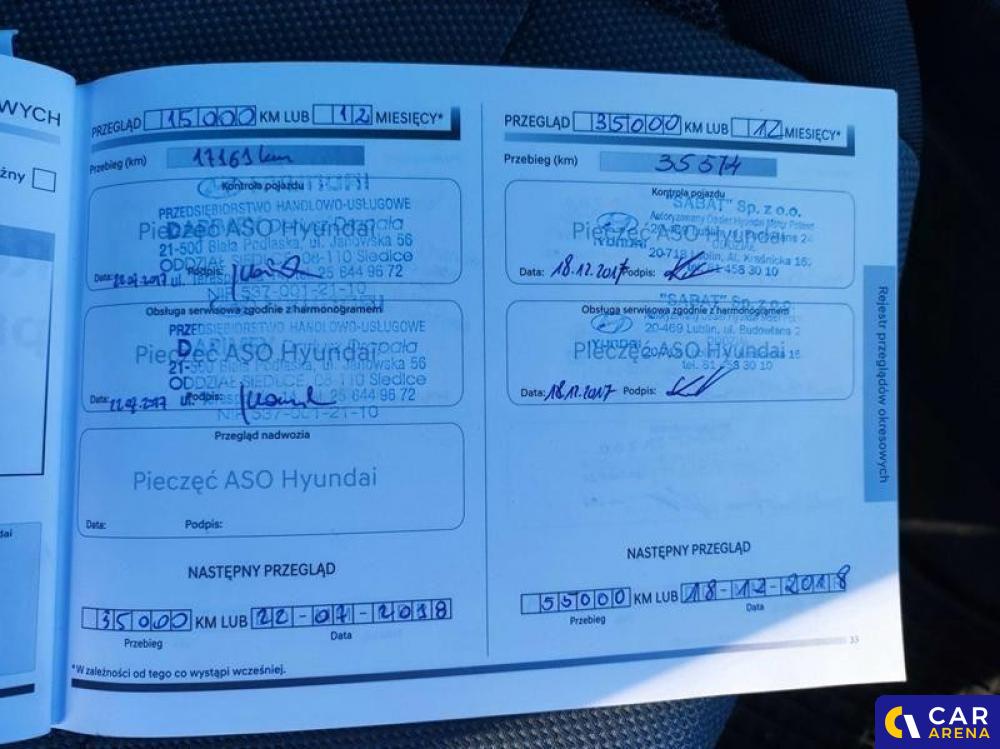 WYCH
żny
PRZEGLĄD 15000 KM LUB 12 MIESIĘCY*
Przebieg (km) 17161 km
Kontrola pojazdu
PRZEDSIĘBIORSTWO HANDLOWO-USŁUGOWE
Pieczęć ASO Hyundai
21-500 Biała Podlaska, ul. Janowska 56
ODDZIAŁ SIEDLCE, 08-110 Siedlce
Data: Podpis: 25 644 96 72
NIP 537-001-21-10
Obsługa serwisowa zgodnie z harmonogramem
PRZEDSIĘBIORSTWO HANDLOWO-USŁUGOWE
Pieczęć ASO Hyundai
21-500 Biała Podlaska, ul. Janowska 56
ODDZIAŁ SIEDLCE, 08-110 Siedlce
Data: Podpis: 25 644 96 72
NIP 537-001-21-10
Przegląd nadwozia
Pieczęć ASO Hyundai
Data: Podpis:
NASTĘPNY PRZEGLĄD
35000 KM LUB 22-07-2018
Przebieg Data
*W zależności od tego co wystąpi wcześniej.
PRZEGLĄD 35000 KM LUB 12 MIESIĘCY*
Przebieg (km) 35574
Kontrola pojazdu
"SABAT" Sp. z o.o.
Pieczęć ASO Hyundai
20-718 Lublin, Al. Kraśnicka
Data: 18.12.2017 Podpis: 458 30 10
Obsługa serwisowa zgodnie z harmonogramem
"SABAT" Sp. z o.o.
20-469 Lublin, ul. Budowlana
Pieczęć ASO Hyundai
Data: 18.12.2017 Podpis:
NASTĘPNY PRZEGLĄD
55000 KM LUB 18-12-2018
Przebieg Data
33
Rejestr przeglądów okresowych
CAR
ARENA